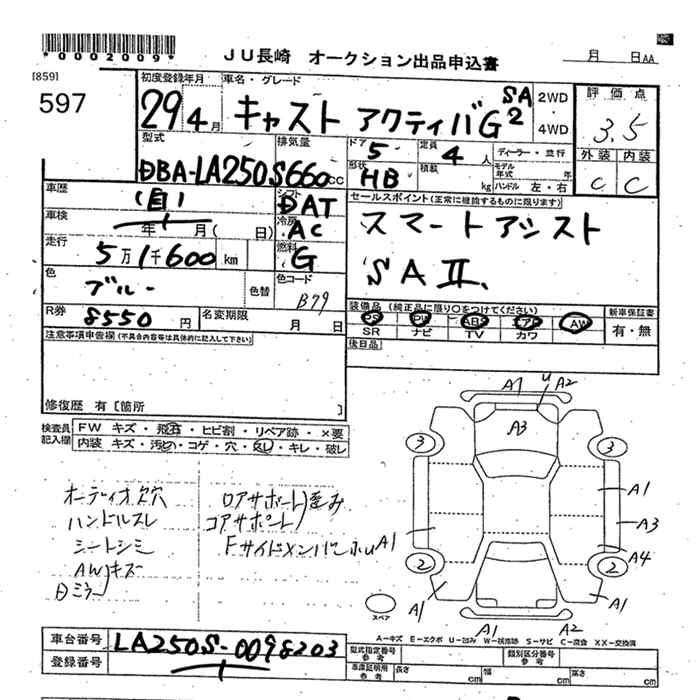 *0002009*
JU長崎 オークション出品申込書
月 日AA
[859]
597
初度登録年月 車名・グレード
29 4月 キャスト アクティバG SA2
2WD・4WD
評価点
3.5
外装 内装
C C
型式 排気量
DBA-LA250S 660cc
ドア 5 定員 4人
ディーラー・並行
形状 HB 積載 kg
モデル年式 年
ハンドル 左・右
車歴 (自)
シフト DAT
車検 年 月( 日)
冷房 AC
走行 5万1千600km
燃料 G
色 ブルー 色替
色コード B79
セールスポイント(正常に機能するものに限ります)
スマートアシスト
SAⅡ.
R券 8550円 名変期限 月 日
装備品(純正品に限り○をつけてください) 新車保証書
PS PW ABS エアB AW
SR ナビ TV カワ
有・無
注意事項申告欄(不具合内容等は具体的に記入して下さい)
後日品
修復歴 有[箇所 ]
検査員記入欄
FW キズ・飛石・ヒビ割・リペア跡・×要
内装 キズ・汚れ・コゲ・穴・スレ・キレ・破レ
オーディオ欠穴
ハンドルスレ
シートシミ
AWキズ
日ミラー
ロアサポート歪み
コアサポート
FサイドメンバーホU
A1 U A2
A3
3 3
A1
A3
A1
A4
2 2
A1 A1
A1 A2
スペア
A-キズ E-エクボ U-凹み W-補修跡 S-サビ C-腐食 XX-交換済
車台番号 LA250S-0098203
登録番号
型式指定番号 参考
類別区分番号 参考
車庫証明用 参考
長さ cm 幅 cm 高さ cm